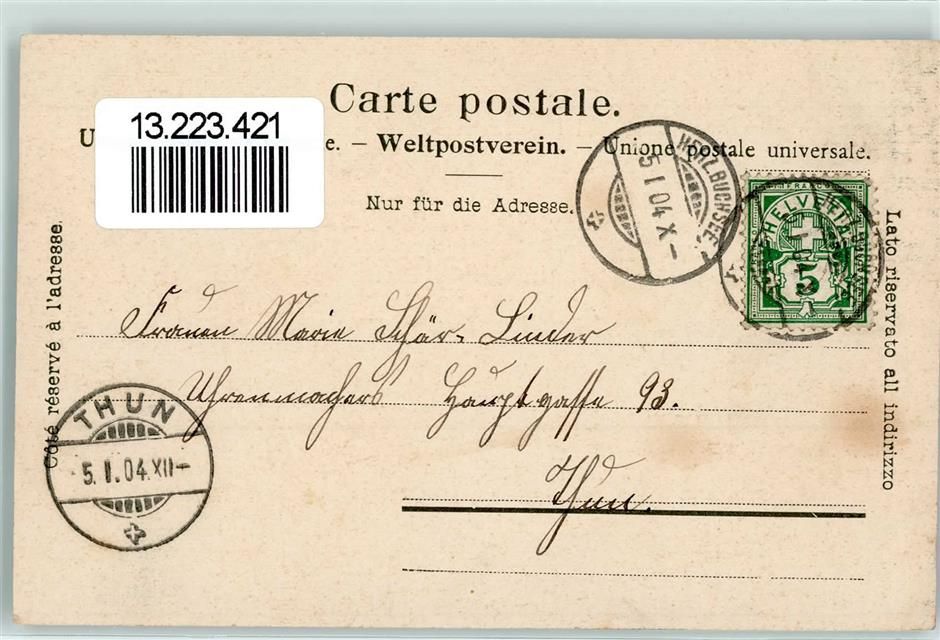 Carte postale.
13.223.421
e. – Weltpostverein. – Unione postale universale.
Nur für die Adresse.
HERZ.BUCHSEE.
5 I 04 X –
HELVETIA
5
Côté réservé à l'adresse.
Lato riservato all indirizzo
Frauen Marie Schär-Linder
Uhrenmachers Hauptgasse 93.
Thun.
THUN
5. I. 04. XII –